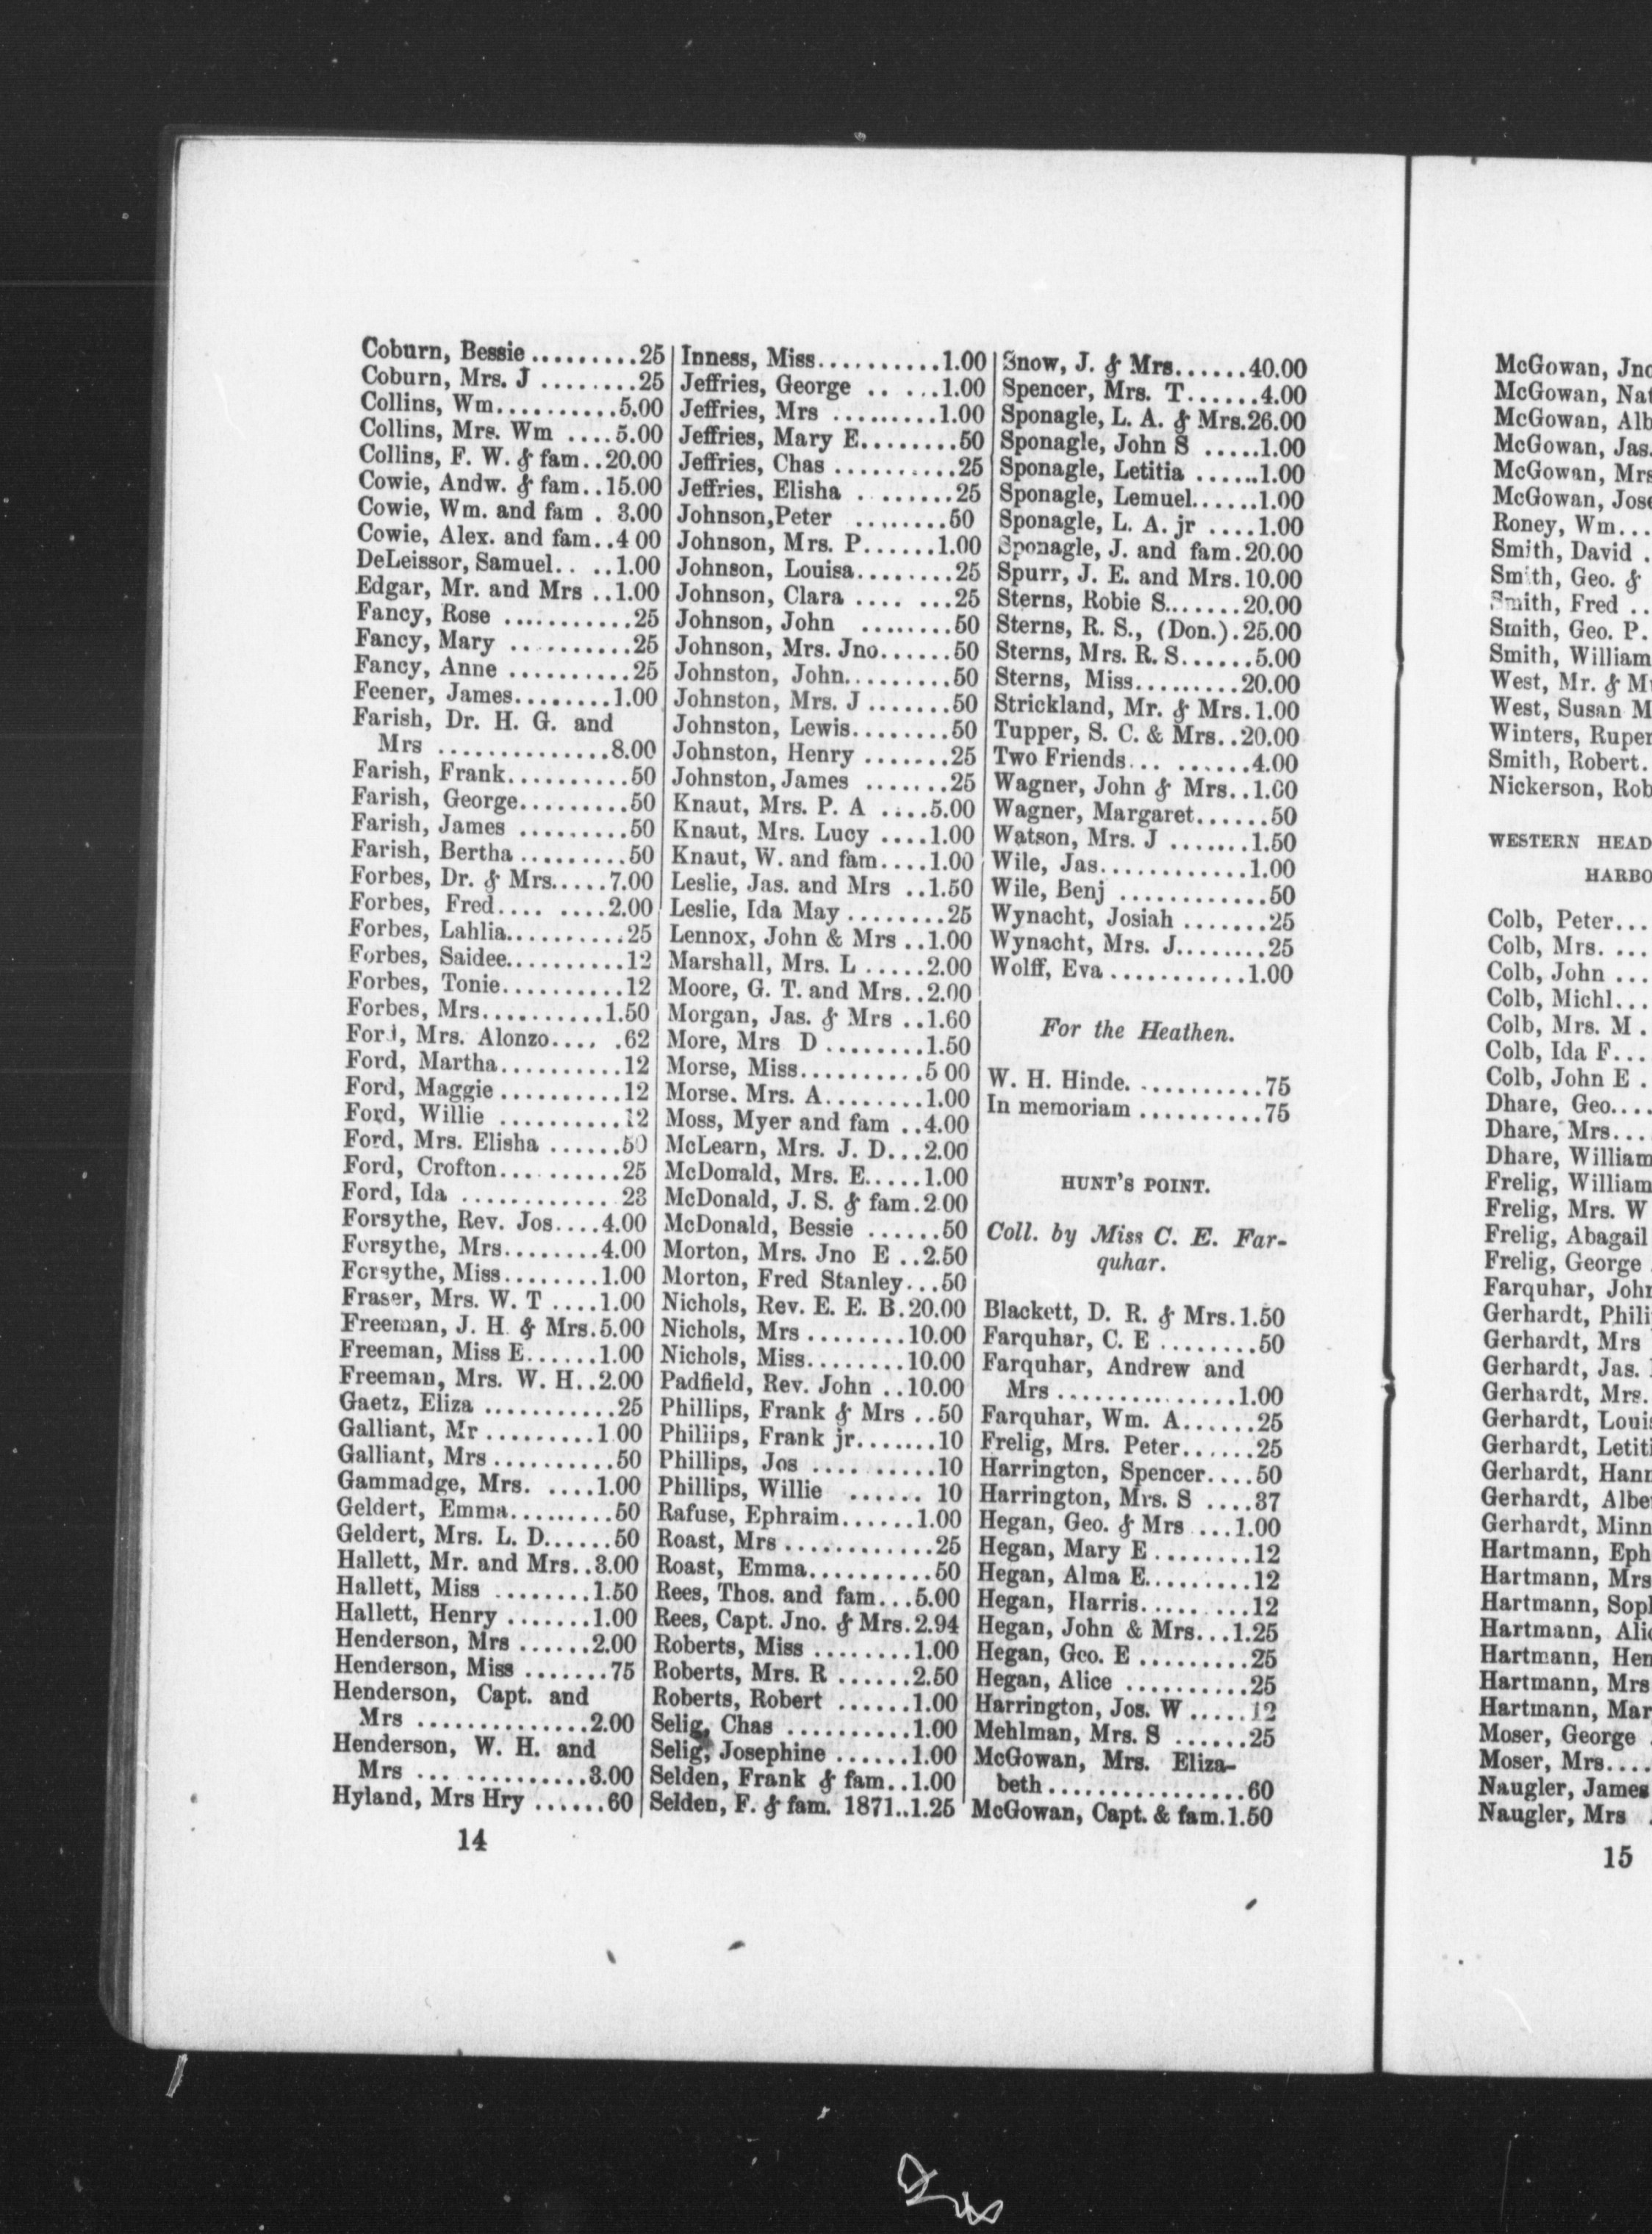 Coburn, Bessie.........25
Coburn, Mrs. J ........25
Collins, Wm..........5.00
Collins, Mrs. Wm ....5.00
Collins, F. W. & fam..20.00
Cowie, Andw. & fam..15.00
Cowie, Wm. and fam . 3.00
Cowie, Alex. and fam..4 00
DeLeissor, Samuel.. ..1.00
Edgar, Mr. and Mrs ..1.00
Fancy, Rose ...........25
Fancy, Mary ..........25
Fancy, Anne ..........25
Feener, James.........1.00
Farish, Dr. H. G. and
Mrs ..............8.00
Farish, Frank..........50
Farish, George.........50
Farish, James .........50
Farish, Bertha.........50
Forbes, Dr. & Mrs.....7.00
Forbes, Fred.... ....2.00
Forbes, Lahlia..........25
Forbes, Saidee..........12
Forbes, Tonie..........12
Forbes, Mrs..........1.50
Ford, Mrs. Alonzo.... .62
Ford, Martha..........12
Ford, Maggie ..........12
Ford, Willie ..........12
Ford, Mrs. Elisha ......50
Ford, Crofton..........25
Ford, Ida ............ 23
Forsythe, Rev. Jos....4.00
Forsythe, Mrs........4.00
Forsythe, Miss........1.00
Fraser, Mrs. W. T ....1.00
Freeman, J. H. & Mrs.5.00
Freeman, Miss E......1.00
Freeman, Mrs. W. H..2.00
Gaetz, Eliza ...........25
Galliant, Mr .........1.00
Galliant, Mrs ..........50
Gammadge, Mrs. ....1.00
Geldert, Emma.........50
Geldert, Mrs. L. D......50
Hallett, Mr. and Mrs..3.00
Hallett, Miss ........1.50
Hallett, Henry .......1.00
Henderson, Mrs ......2.00
Henderson, Miss .......75
Henderson, Capt. and
Mrs ..............2.00
Henderson, W. H. and
Mrs ... ...........3.00
Hyland, Mrs Hry ......60
14
Inness, Miss...........1.00
Jeffries, George .. ...1.00
Jeffries, Mrs .........1.00
Jeffries, Mary E........50
Jeffries, Chas ...........25
Jeffries, Elisha . .......25
Johnson,Peter ........50
Johnson, Mrs. P......1.00
Johnson, Louisa........25
Johnson, Clara .... ...25
Johnson, John ........50
Johnson, Mrs. Jno......50
Johnston, John.........50
Johnston, Mrs. J .......50
Johnston, Lewis........50
Johnston, Henry .......25
Johnston, James .......25
Knaut, Mrs. P. A ....5.00
Knaut, Mrs. Lucy ....1.00
Knaut, W. and fam....1.00
Leslie, Jas. and Mrs ..1.50
Leslie, Ida May ........25
Lennox, John & Mrs ..1.00
Marshall, Mrs. L .....2.00
Moore, G. T. and Mrs..2.00
Morgan, Jas. & Mrs ..1.60
More, Mrs D ........1.50
Morse, Miss..........5 00
Morse. Mrs. A........1.00
Moss, Myer and fam ..4.00
McLearn, Mrs. J. D...2.00
McDonald, Mrs. E.....1.00
McDonald, J. S. & fam.2.00
McDonald, Bessie ......50
Morton, Mrs. Jno E ..2.50
Morton, Fred Stanley...50
Nichols, Rev. E. E. B.20.00
Nichols, Mrs ........10.00
Nichols, Miss........10.00
Padfield, Rev. John ..10.00
Phillips, Frank & Mrs ..50
Phillips, Frank jr.......10
Phillips, Jos ..........10
Phillips, Willie ...... 10
Rafuse, Ephraim......1.00
Roast, Mrs .............25
Roast, Emma...........50
Rees, Thos. and fam...5.00
Rees, Capt. Jno. & Mrs.2.94
Roberts, Miss ........1.00
Roberts, Mrs. R ......2.50
Roberts, Robert ......1.00
Selig, Chas ...........1.00
Selig, Josephine ......1.00
Selden, Frank & fam..1.00
Selden, F. & fam. 1871..1.25
Snow, J. & Mrs......40.00
Spencer, Mrs. T......4.00
Sponagle, L. A. & Mrs.26.00
Sponagle, John S .....1.00
Sponagle, Letitia ......1.00
Sponagle, Lemuel......1.00
Sponagle, L. A. jr ....1.00
Sponagle, J. and fam.20.00
Spurr, J. E. and Mrs.10.00
Sterns, Robie S.......20.00
Sterns, R. S., (Don.).25.00
Sterns, Mrs. R. S......5.00
Sterns, Miss.........20.00
Strickland, Mr. & Mrs.1.00
Tupper, S. C. & Mrs..20.00
Two Friends... ......4.00
Wagner, John & Mrs..1.00
Wagner, Margaret......50
Watson, Mrs. J .......1.50
Wile, Jas.............1.00
Wile, Benj .............50
Wynacht, Josiah .......25
Wynacht, Mrs. J........25
Wolff, Eva ............1.00
For the Heathen.
W. H. Hinde. ...........75
In memoriam ...........75
HUNT'S POINT.
Coll. by Miss C. E. Far-
quhar.
Blackett, D. R. & Mrs.1.50
Farquhar, C. E ........50
Farquhar, Andrew and
Mrs ................1.00
Farquhar, Wm. A......25
Frelig, Mrs. Peter......25
Harrington, Spencer....50
Harrington, Mrs. S ....37
Hegan, Geo. & Mrs ...1.00
Hegan, Mary E ........12
Hegan, Alma E.........12
Hegan, Harris..........12
Hegan, John & Mrs...1.25
Hegan, Geo. E .........25
Hegan, Alice ..........25
Harrington, Jos. W .....12
Mehlman, Mrs. S ......25
McGowan, Mrs. Eliza-
beth.................60
McGowan, Capt. & fam.1.50
McGowan, Jno
McGowan, Nat
McGowan, Alb
McGowan, Jas.
McGowan, Mrs
McGowan, Jose
Roney, Wm...
Smith, David .
Smith, Geo. &
Smith, Fred ..
Smith, Geo. P.
Smith, William
West, Mr. & M
West, Susan M
Winters, Ruper
Smith, Robert.
Nickerson, Rob
WESTERN HEAD
HARBO
Colb, Peter...
Colb, Mrs. ...
Colb, John ...
Colb, Michl...
Colb, Mrs. M .
Colb, Ida F...
Colb, John E .
Dhare, Geo....
Dhare, Mrs...
Dhare, William
Frelig, William
Frelig, Mrs. W
Frelig, Abagail
Frelig, George .
Farquhar, John
Gerhardt, Phili
Gerhardt, Mrs
Gerhardt, Jas.
Gerhardt, Mrs.
Gerhardt, Loui
Gerhardt, Letiti
Gerhardt, Hann
Gerhardt, Albe
Gerhardt, Minn
Hartmann, Eph
Hartmann, Mrs
Hartmann, Sop
Hartmann, Alic
Hartmann, Hen
Hartmann, Mrs
Hartmann, Mar
Moser, George .
Moser, Mrs....
Naugler, James
Naugler, Mrs .
15